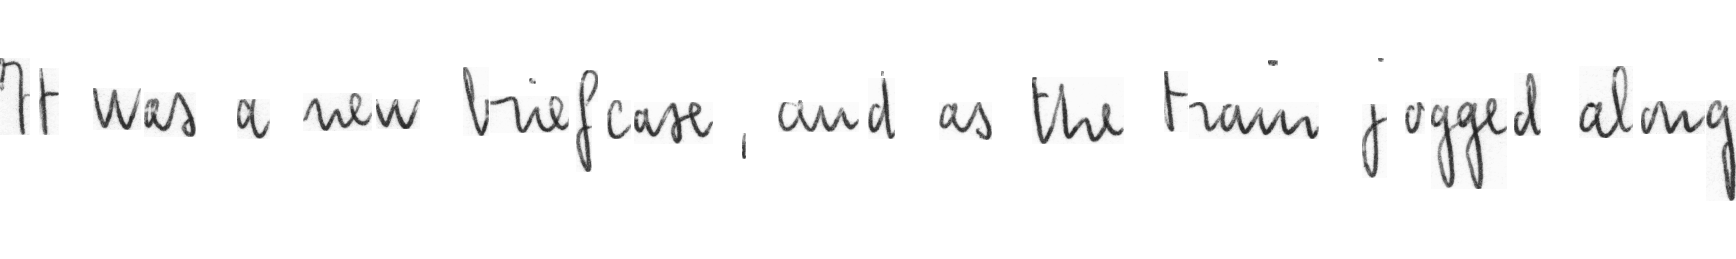 It was a new briefcase, and as the train jogged along